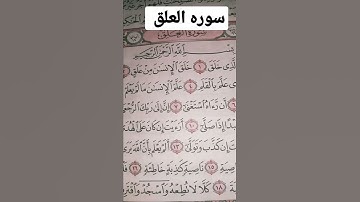 سوره العلق
سُورَةُ العَلَقِ
بِسْمِ اللَّهِ الرَّحْمَٰنِ الرَّحِيمِ
الَّذِي خَلَقَ ١ خَلَقَ الْإِنسَٰنَ مِنْ عَلَقٍ
عَلَّمَ بِالْقَلَمِ ٤ عَلَّمَ الْإِنسَٰنَ مَا لَمْ يَعْلَمْ
أَن رَّءَاهُ اسْتَغْنَىٰ ٧ إِنَّ إِلَىٰ رَبِّكَ الرُّجْعَىٰ
إِذَا صَلَّىٰ ١٠ أَرَءَيْتَ إِن كَانَ عَلَى الْهُدَىٰ
إِن كَذَّبَ وَتَوَلَّىٰ ١٣ أَلَمْ يَعْلَم بِأَنَّ اللَّهَ يَرَىٰ
١٥ نَاصِيَةٍ كَٰذِبَةٍ خَاطِئَةٍ ١٦
١٨ كَلَّا لَا تُطِعْهُ وَاسْجُدْ وَاقْتَرِب